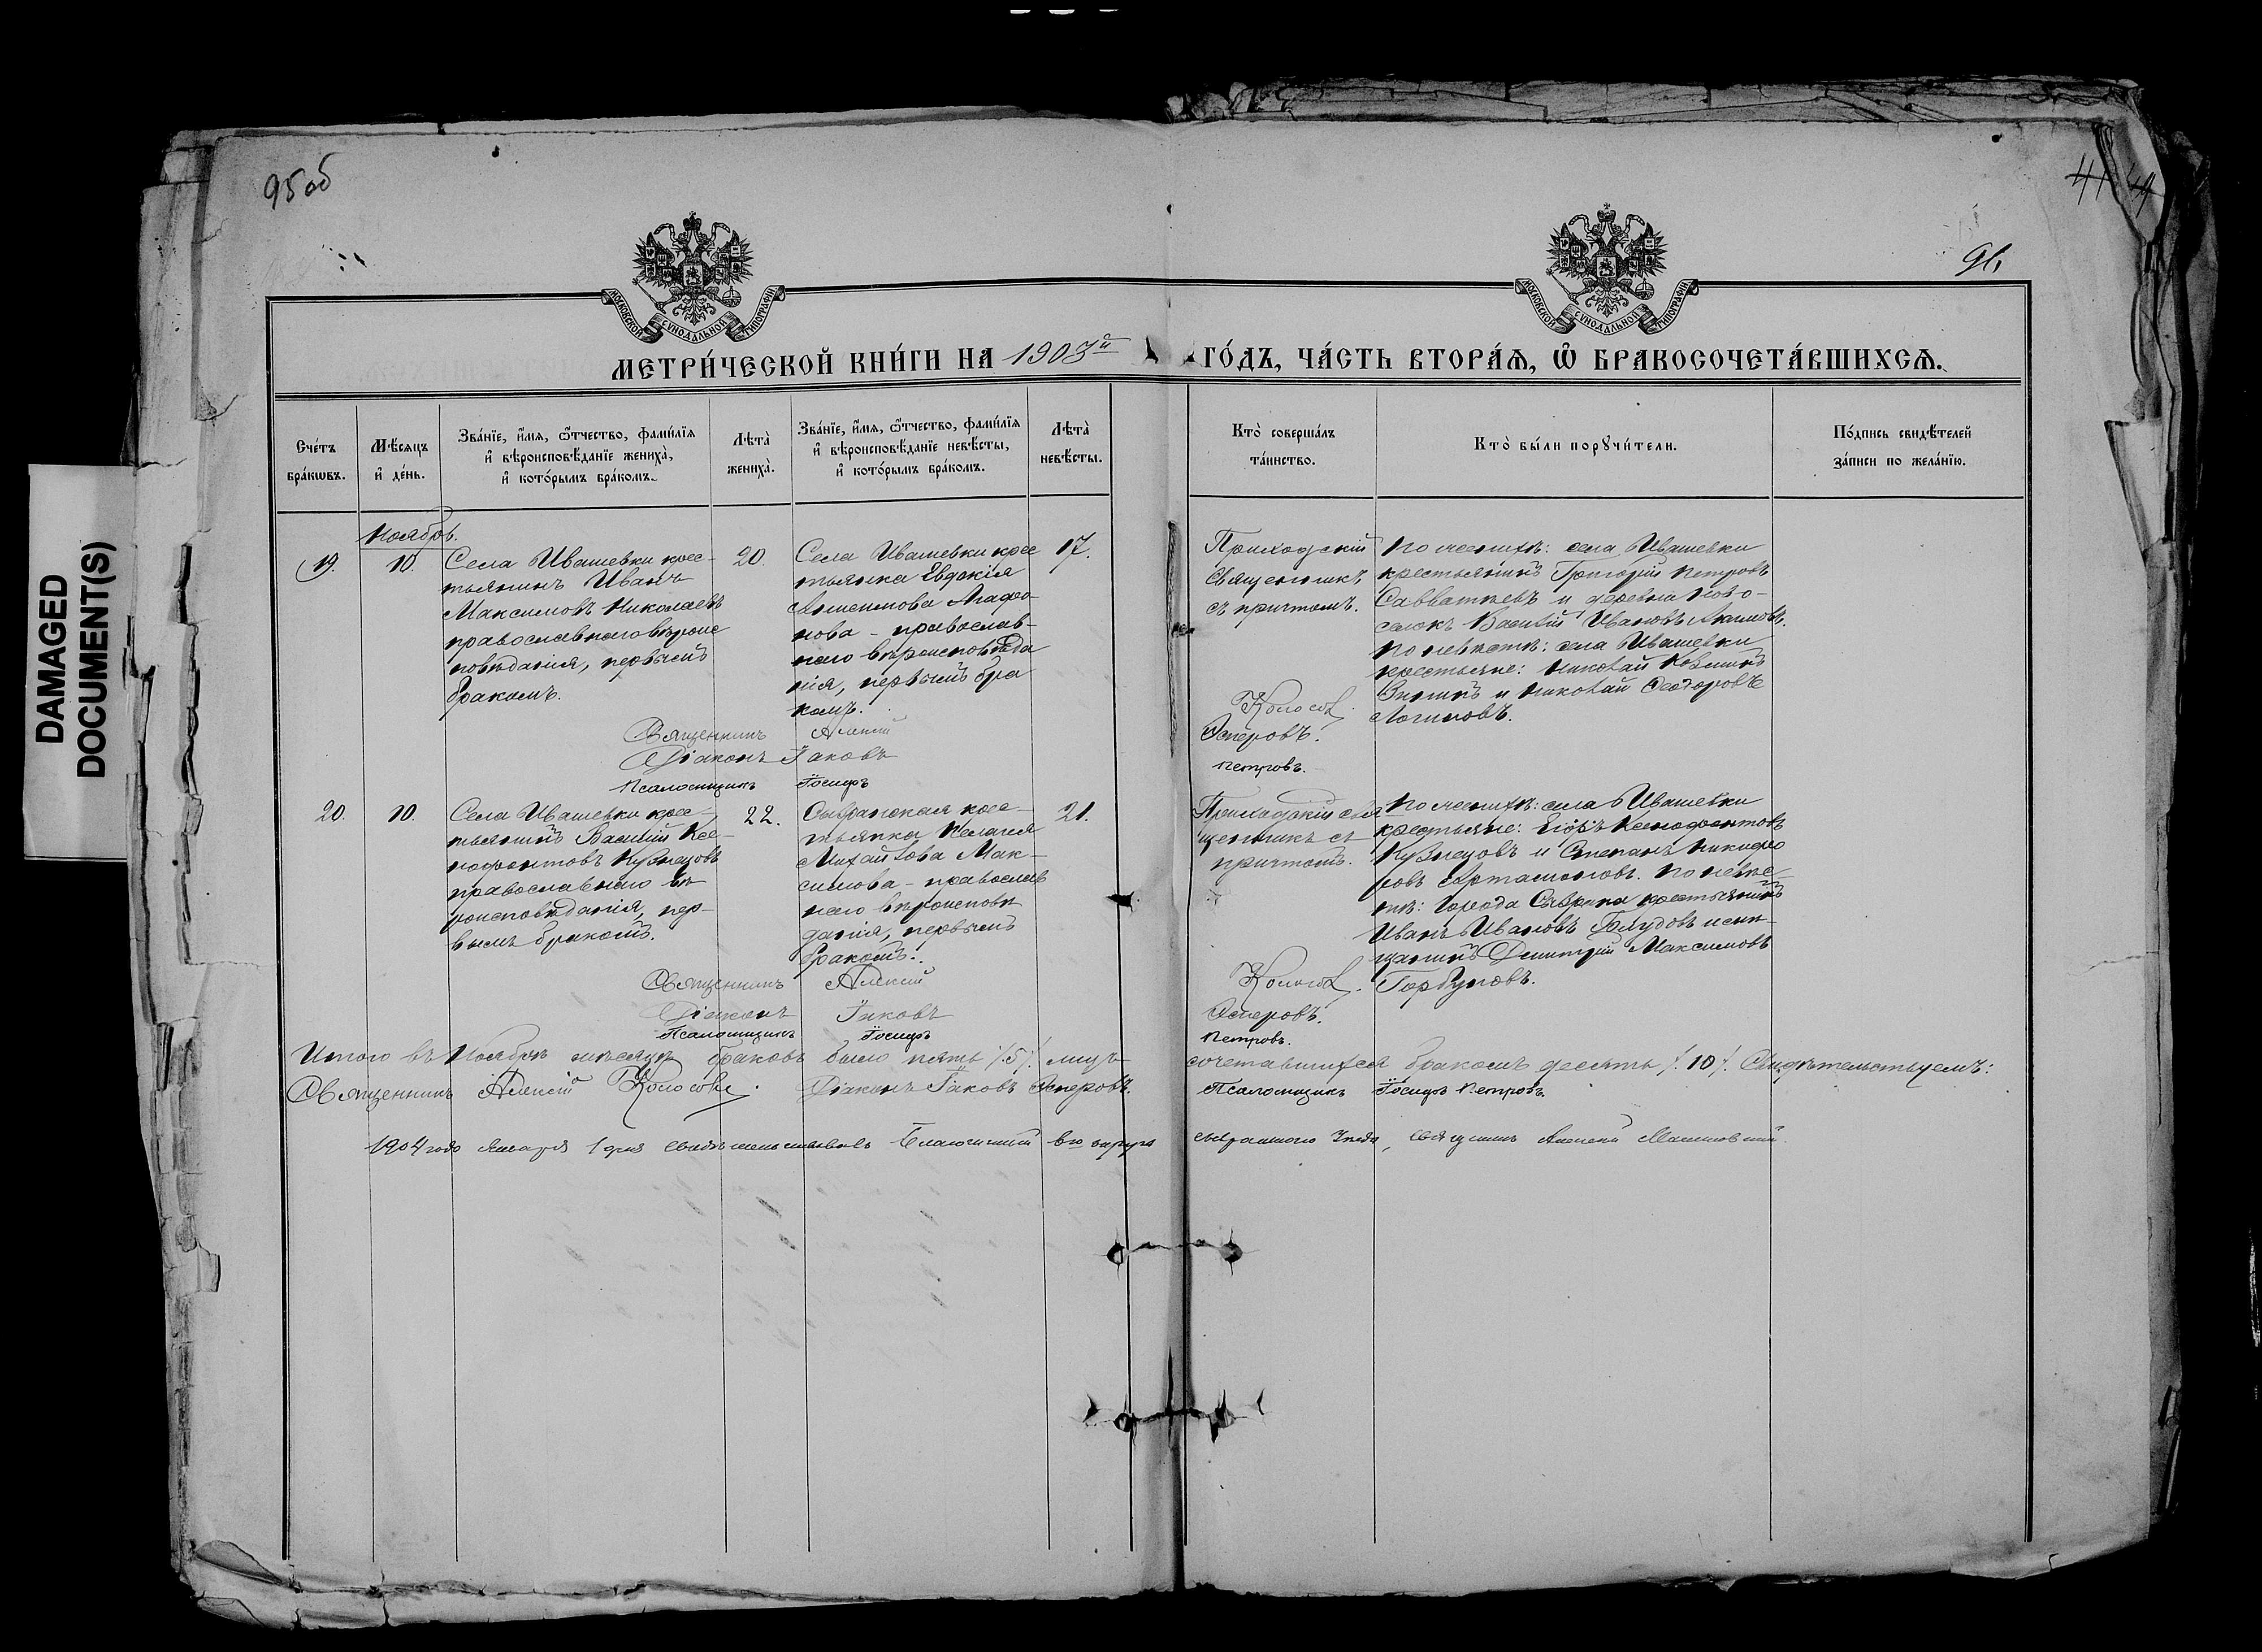 95об
41
96
DAMAGED
DOCUMENT(S)
МОСКОВСКОЙ СѴНОДАЛЬНОЙ ТИПОГРАФІИ
МОСКОВСКОЙ СѴНОДАЛЬНОЙ ТИПОГРАФІИ
МЕТРИ́ЧЕСКОЙ КНИ́ГИ НА 1903й ГО́ДЪ, ЧА́СТЬ ВТОРА́Я, Ѽ БРАКОСОЧЕТА́ВШИХСЯ.
Сче́тъ
бра́кѡвъ.
Мѣ́сяцъ
и҆ де́нь.
Зва́нїе, и҆́мя, ѻ҆́тчество, фами́лїя
и҆ вѣроисповѣ́данїе жениха̀,
и҆ кото́рымъ бра́комъ.
Лѣта̀
жениха̀.
Зва́нїе, и҆́мя, ѻ҆́тчество, фами́лїя
и҆ вѣроисповѣ́данїе невѣ́сты,
и҆ кото́рымъ бра́комъ.
Лѣта̀
невѣ́сты.
Кто̀ соверша́лъ
та́инство.
Кто̀ бы́ли порꙋчи́тели.
По́дпись свидѣ́телей
за́писи по жела́нїю.
Ноябрь.
19.
10.
Села Ивашевки крес-
тьянинъ Иванъ
Максимовъ Николаевъ
православнаго вѣроис
повѣданія, первымъ
бракомъ.
20.
Села Ивашевки крес
тьянка Евдокія
Агафо-
нова - православ-
наго вѣроисповѣда
нія, первымъ бра
комъ.
17.
Приходскій
священникъ
съ причтомъ.
По женихѣ: села Ивашевки
крестьянинъ Григорій Петровъ
Савватѣевъ и деревни Ново-
селокъ Василій Ивановъ Акимовъ.
По невѣстѣ: села Ивашевки
крестьяне: Николай Козминъ
и Николай Ѳеодоровъ
Логиновъ.
Священникъ Алексій Колосовъ.
Діаконъ Іаковъ Эсперовъ.
Псаломщикъ Іосифъ Петровъ.
20.
10.
Села Ивашевки крес-
тьянинъ Василій Ксе-
нофонтовъ Кузнецовъ
православнаго вѣ
роисповѣданія, пер-
вымъ бракомъ.
22.
Сызранская крес-
тьянка Пелагія
Михайлова Мак-
симова - православ
наго вѣроисповѣ
данія, первымъ
бракомъ.
21.
Приходскій свя-
щенникъ съ
причтомъ.
По женихѣ: села Ивашевки
крестьяне: Егоръ Ксенофонтовъ
Кузнецовъ и Степанъ Никифо
ровъ Артамоновъ. По невѣс
тѣ: Города Сызрана крестьянинъ
Иванъ Ивановъ Блудовъ и мѣ-
щанинъ Димитрій Максимовъ
Горбуновъ.
Священникъ Алексій Колосовъ.
Діаконъ Іаковъ Эсперовъ.
Псаломщикъ Іосифъ Петровъ.
Итого въ Ноябрѣ мѣсяцѣ браковъ было пять /5/. лицъ сочетавшихся бракомъ десять /10/. Свидѣтельствуемъ:
Священникъ Алексій Колосовъ. Діаконъ Іаковъ Эсперовъ. Псаломщикъ Іосифъ Петровъ.
1904 года Января 1 дня свидѣтельствовалъ Благочинный 6го округа Сызранскаго уѣзда, священникъ Алексій